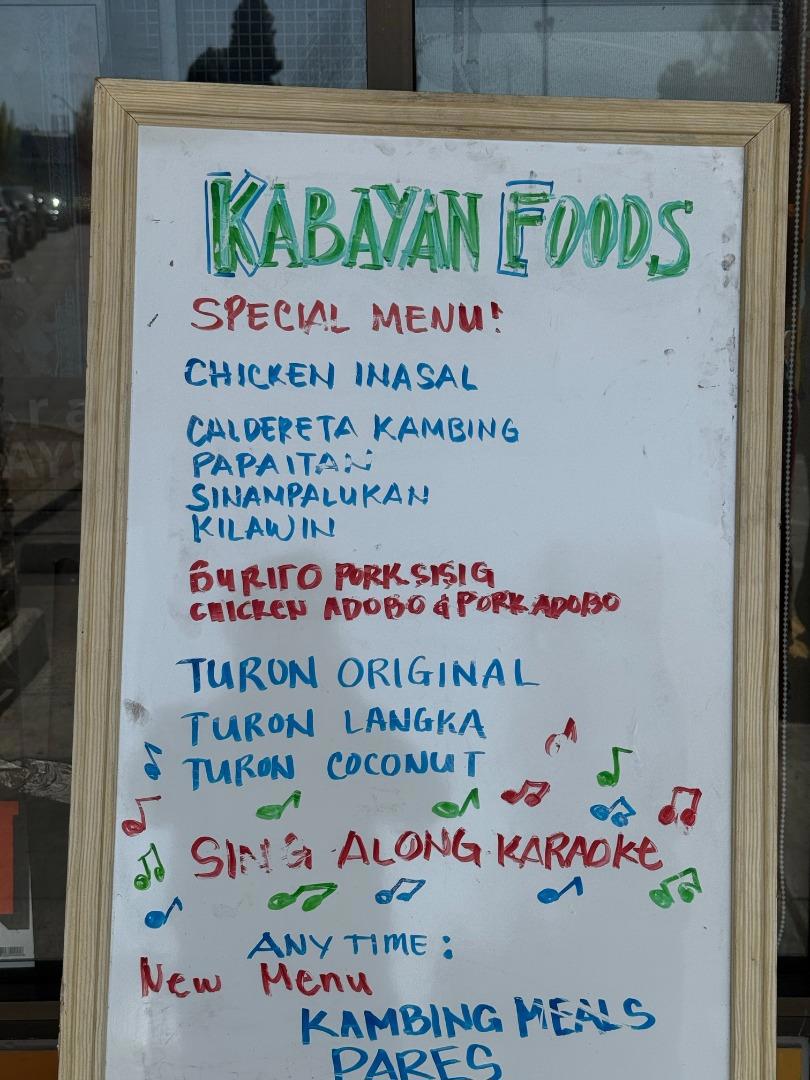 KABAYAN FOODS
SPECIAL MENU!
CHICKEN INASAL
CALDERETA KAMBING
PAPAITAN
SINAMPALUKAN
KILAWIN
BURITO PORK SISIG
CHICKEN ADOBO & PORK ADOBO
TURON ORIGINAL
TURON LANGKA
TURON COCONUT
SING ALONG KARAOKE
ANY TIME :
New Menu
KAMBING MEALS
PARES